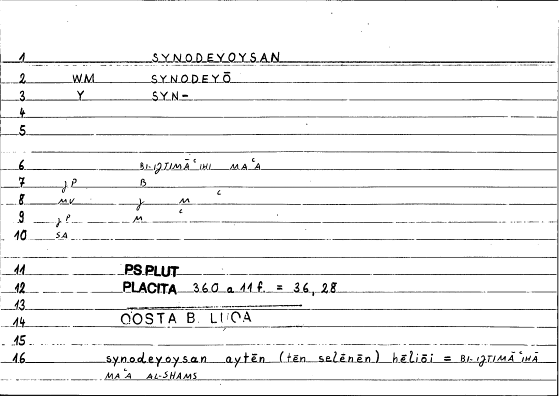 1 SYNODEYOYSAN
2 WM SYNODEYŌ
3 Y SYN-
4
5
6 BI-IJTIMĀʿIHI MAʿA
7 JP B
8 MV J M ʿ
9 JP M ʿ
10 SA
11 PS.PLUT
12 PLACITA 360 a 11 f. = 36, 28
13
14 QOSTA B. LUQA
15
16 synodeyoysan aytēn (tēn selēnēn) hēliōi = BI-IJTIMĀʿIHĀ
MAʿA AL-SHAMS